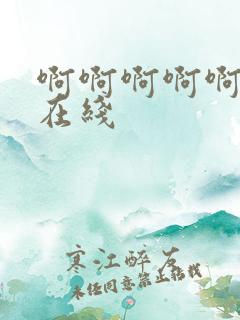 啊啊啊啊啊
在綫
寒江醉友
未任同意禁止转载